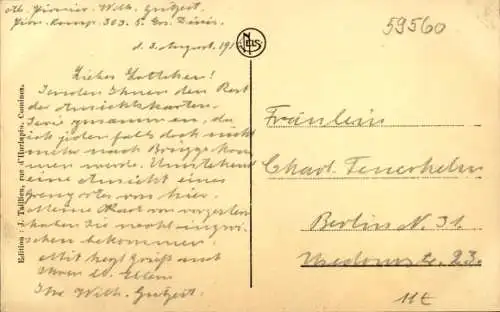 Abs. Pionier Wilh. Gutzeit
Pion. Komp. 303. 5. Ers. Divis.
d. 3. August. 191
Liebes Lottchen!
Senden Ihnen den Rest
der Ansichtskarten-
Serie zusammen, da
ich jedenfalls doch nicht
mehr nach Brügge kom-
men werde. Umstehend
eine Ansicht eines
Grenzortes von hier.
Meine Karte von vorgestern
haben Sie wohl inzwi-
schen bekommen.
Mit herzl. Gruß auch
Ihren lb. Eltern
Ihr Wilh. Gutzeit.
Edition : J. Taillieu, rue d'Hurlupin. Comines.
NELS
59560
Fräulein
Charl.
Berlin N. 31.
Usedomstr. 23.
11€